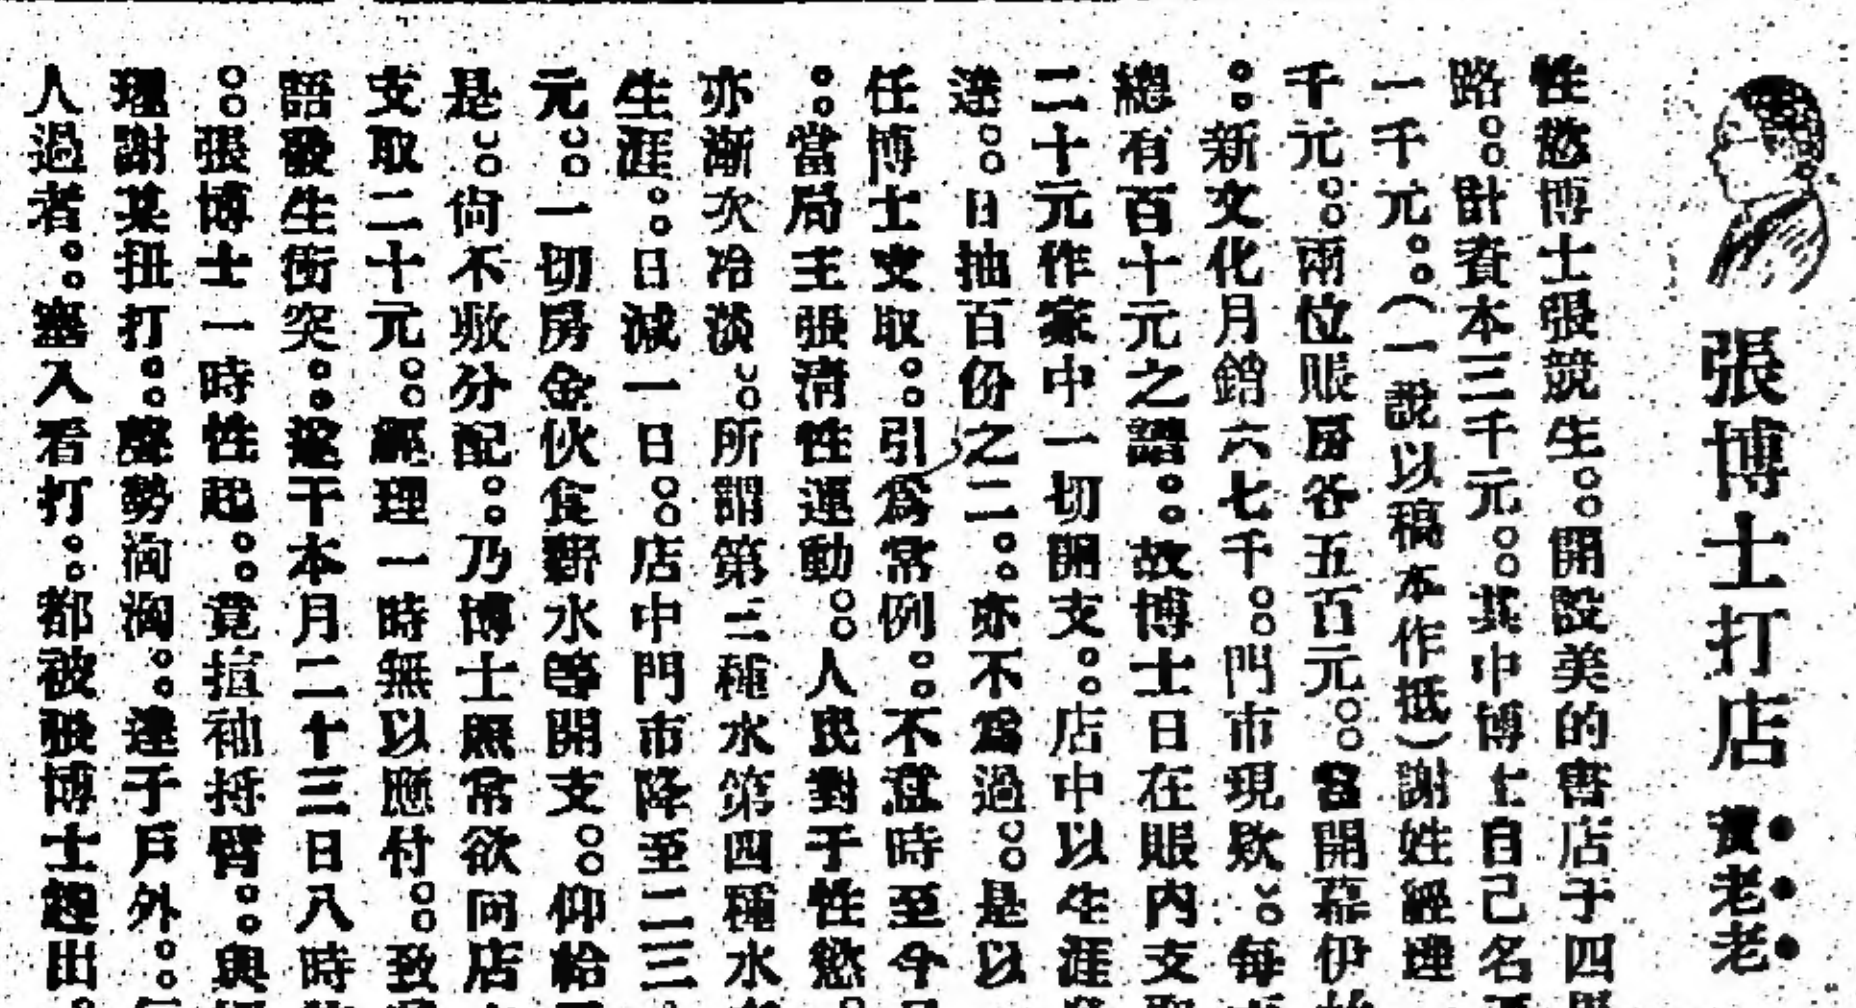 張博士打店
老老
性慾博士張競生。。開設美的書店于四
路。。計資本三千元。。其中博士自己名
一千元。。(一說以稿本作抵)謝姓經理
千元。。兩位賬房各五百元。。當開幕伊
。。新文化月銷六七千。。門市現款。。每
總有百十元之譜。。故博士日在賬內支
二十元作家中一切開支。。店中以生涯
達。。日抽百份之二。。亦不爲過。。是以
任博士支取。。引爲常例。。不意時至今
。。當局主張清性運動。。人民對于性慾
亦漸次冷淡。。所謂第三種水第四種水
生涯。。日減一日。。店中門市降至二三
元。。一切房金伙食薪水等開支。。仰給
是。。尙不敷分配。。乃博士照常欲向店
支取二十元。。經理一時無以應付。。致
語發生衝突。。遂于本月二十三日八時
。。張博士一時性起。。竟揎袖捋臂。。與
理謝某扭打。。聲勢洶洶。。達于戶外。。
人過者。。塞入看打。。都被張博士趕出